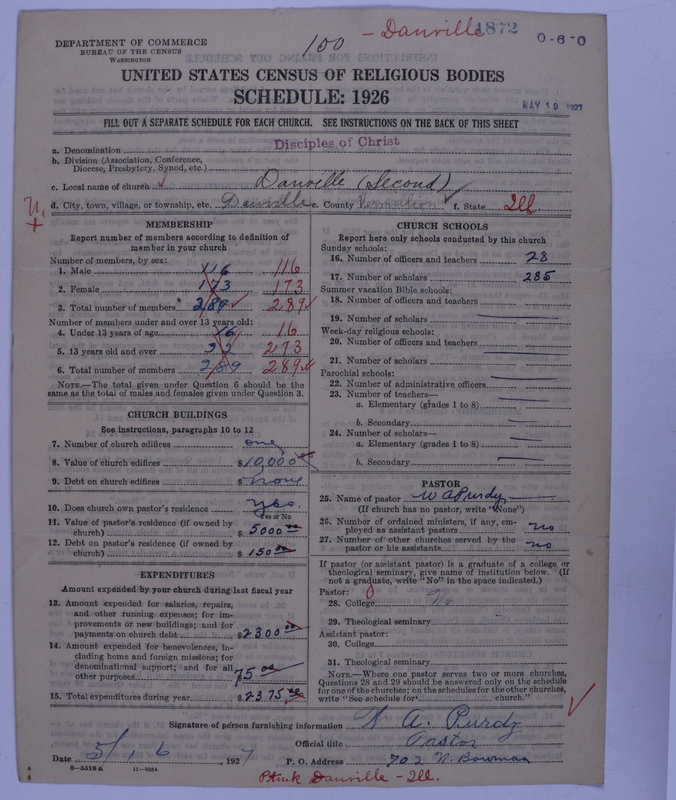 - Danville 1872 0-6-0
100
DEPARTMENT OF COMMERCE
BUREAU OF THE CENSUS
WASHINGTON
UNITED STATES CENSUS OF RELIGIOUS BODIES
SCHEDULE: 1926
MAY 19 1927
FILL OUT A SEPARATE SCHEDULE FOR EACH CHURCH. SEE INSTRUCTIONS ON THE BACK OF THIS SHEET
a. Denomination Disciples of Christ
b. Division (Association, Conference,
Diocese, Presbytery, Synod, etc.)
c. Local name of church Danville (Second)
d. City, town, village, or township, etc. Danville e. County Vermillion f. State Ill.
MEMBERSHIP
Report number of members according to definition of
member in your church
Number of members, by sex:
1. Male 116 116
2. Female 173 173
3. Total number of members 289 289
Number of members under and over 13 years old:
4. Under 13 years of age 16 16
5. 13 years old and over 273
6. Total number of members 289 289
NOTE.—The total given under Question 6 should be the
same as the total of males and females given under Question 3.
CHURCH BUILDINGS
See instructions, paragraphs 10 to 12
7. Number of church edifices one
8. Value of church edifices $10,000 00
9. Debt on church edifices $ none
10. Does church own pastor's residence yes.
Yes or No
11. Value of pastor's residence (if owned by
church) $ 5000 00
12. Debt on pastor's residence (if owned by
church) $ 150 00
EXPENDITURES
Amount expended by your church during last fiscal year
13. Amount expended for salaries, repairs,
and other running expenses; for im-
provements or new buildings; and for
payments on church debt $2300 00
14. Amount expended for benevolences, in-
cluding home and foreign missions; for
denominational support; and for all
other purposes $75 00
15. Total expenditures during year $2375 00
CHURCH SCHOOLS
Report here only schools conducted by this church
Sunday schools:
16. Number of officers and teachers 28
17. Number of scholars 285
Summer vacation Bible schools:
18. Number of officers and teachers
19. Number of scholars
Week-day religious schools:
20. Number of officers and teachers
21. Number of scholars
Parochial schools:
22. Number of administrative officers
23. Number of teachers—
a. Elementary (grades 1 to 8)
b. Secondary
24. Number of scholars—
a. Elementary (grades 1 to 8)
b. Secondary
PASTOR
25. Name of pastor W A Purdy
(If church has no pastor, write "None")
26. Number of ordained ministers, if any, em-
ployed as assistant pastors no
27. Number of other churches served by the
pastor or his assistants no
If pastor (or assistant pastor) is a graduate of a college or
theological seminary, give name of institution below. (If
not a graduate, write "No" in the space indicated.)
Pastor: 0
28. College No
29. Theological seminary
Assistant pastor:
30. College
31. Theological seminary
NOTE.—Where one pastor serves two or more churches,
Questions 28 and 29 should be answered only on the schedule
for one of the churches; on the schedules for the other churches,
write "See schedule for church."
Signature of person furnishing information W A. Purdy
Official title Pastor
Date 5/16 1927 P. O. Address 702 N. Bowman
8-5518a 11-9024
Danville - Ill.